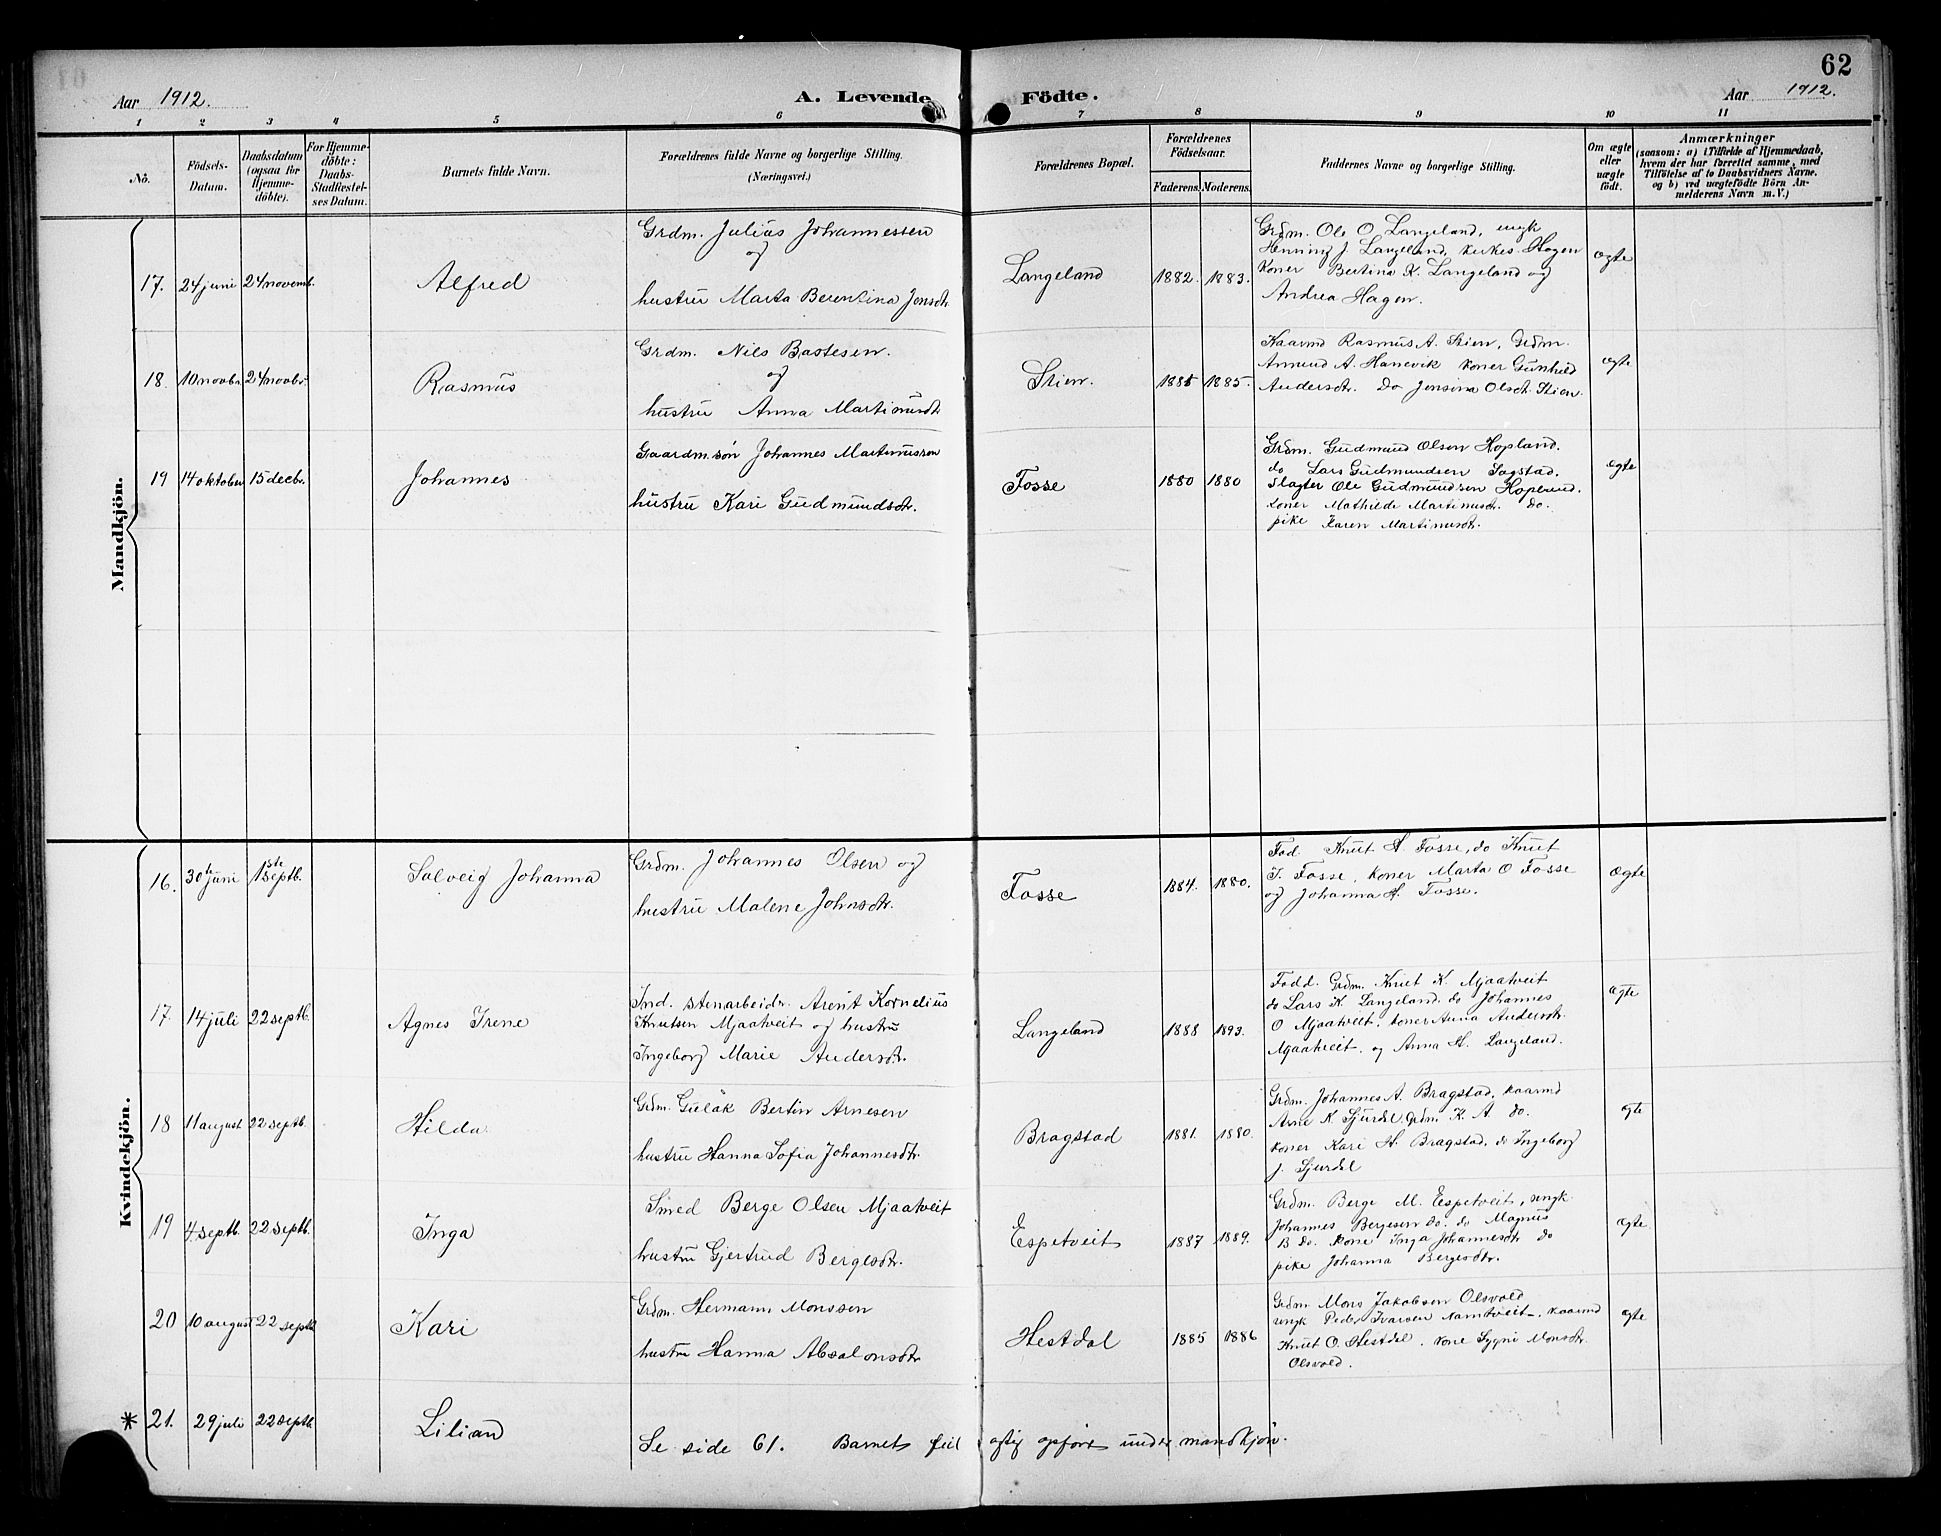 62
Aar 1912.
A. Levende Födte.
Aar 1912.
1 2 3 4 5 6 7 8 9 10 11
No.
Födsels-Datum.
Daabsdatum (ogsaa for Hjemme-döbte).
For Hjemme-döbte: Daabs-Stadfæstel-ses Datum.
Barnets fulde Navn.
Forældrenes fulde Navne og borgerlige Stilling.
(Næringsvei.)
Forældrenes Bopæl.
Forældrenes Födselsaar.
Faderens. Moderens.
Faddernes Navne og borgerlige Stilling.
Om ægte eller uægte födt.
Anmærkninger
(saasom: a) i Tilfælde af Hjemmedaab,
hvem der har forrettet samme, med
Tilföielse af to Daabsvidners Navne.
og b) ved uægtefödte Börn An-
melderens Navn m.V.)
Mandkjön.
17. 24 juni 24 novemb. Alfred
Grdm. Julius Johannessen
og
hustru Marta Berentina Jonsdtr.
Langeland 1882. 1883.
Grdm. Ole O Langeland, ungk
Henning J. Langeland, kirkes. Hagen
koner Bertina K. Langeland og
Andrea Hagen.
ægte
18. 10 novbr. 24 novbr. Rasmus
Grdm. Nils Bastesen.
og
hustru Anna Martinusdtr
Stien. 1885 1885.
Kaarmd Rasmus A. Stien, Grdm.
Anmund A. Hanevik koner Gunhild
Andersdtr. Do Jensina Olsdtr. Stien.
ægte
19 14 oktober 15 decbr. Johannes
Gaardm.søn Johannes Martinussen
hustru Kari Gudmundsdtr.
Fosse 1880 1880
Grdm. Gudmund Olsen Hopland.
do Lars Gudmundsen Sagstad.
Slagter Ole Gudmundsen Hopland.
koner Mathilde Martinusdtr. do.
pike Karen Martinusdtr.
ægte
Kvindekjön.
16. 30te juni 1ste septb. Solveig Johanna
Grdm. Johannes Olsen og
hustru Malene Johnsdtr.
Fosse 1884. 1880.
Fod. Knut H. Fosse, do Knut
J. Fosse, koner Marta O Fosse
og Johanna H. Fosse.
ægte
17. 14 juli 22 septb. Agnes Irene
Ind. stenarbeidr. Arent Kornelius
Knutsen Mjaatveit og hustru
Ingeborg Marie Andersdtr.
Langeland 1888 1893.
Fodd. Grdm. Knut K. Mjaatveit
do Lars K. Langeland. do Johannes
O Mjaatveit. koner Anna Andersdtr.
Mjaatveit. og Anna H. Langeland.
ægte
18 11 august 22 septb. Hilda
Grdm. Gulak Bertin Arnesen
hustru Hanna Sofia Johannesdtr.
Bragstad 1881. 1880.
Grdm. Johannes A. Bragstad, kaarmd
Arne K. Sjurdal. Grdm. K. A. do.
koner Kari H. Bragstad. do Ingeborg
J. Sjurdal
ægte
19 4 septb. 22 septb. Inga
Smed Berge Olsen Mjaatveit
hustru Gjertrud Bergesdtr.
Espetveit 1887 1889.
Grdm. Berge M. Espetveit, ungk.
Johannes Bergesen do. do Magnus
B do. kone Inga Johannesdtr do
pike Johanna Bergesdtr.
ægte
20 10 august 22 septb Kari
Grdm. Hermann Monssen
hustru Hanna Absalonsdtr
Hestdal 1885 1886
Grdm. Mons Jakobsen Olsvold
ungk Peder Ivarsen Namtveit, kaarmd
Knut O. Hestdal. kone Sygni Monsdtr.
Olsvold.
ægte
* 21. 29 juli 22 septb. Lilian
Se side 61. Barnet feilagtig opført under mandkjøn.